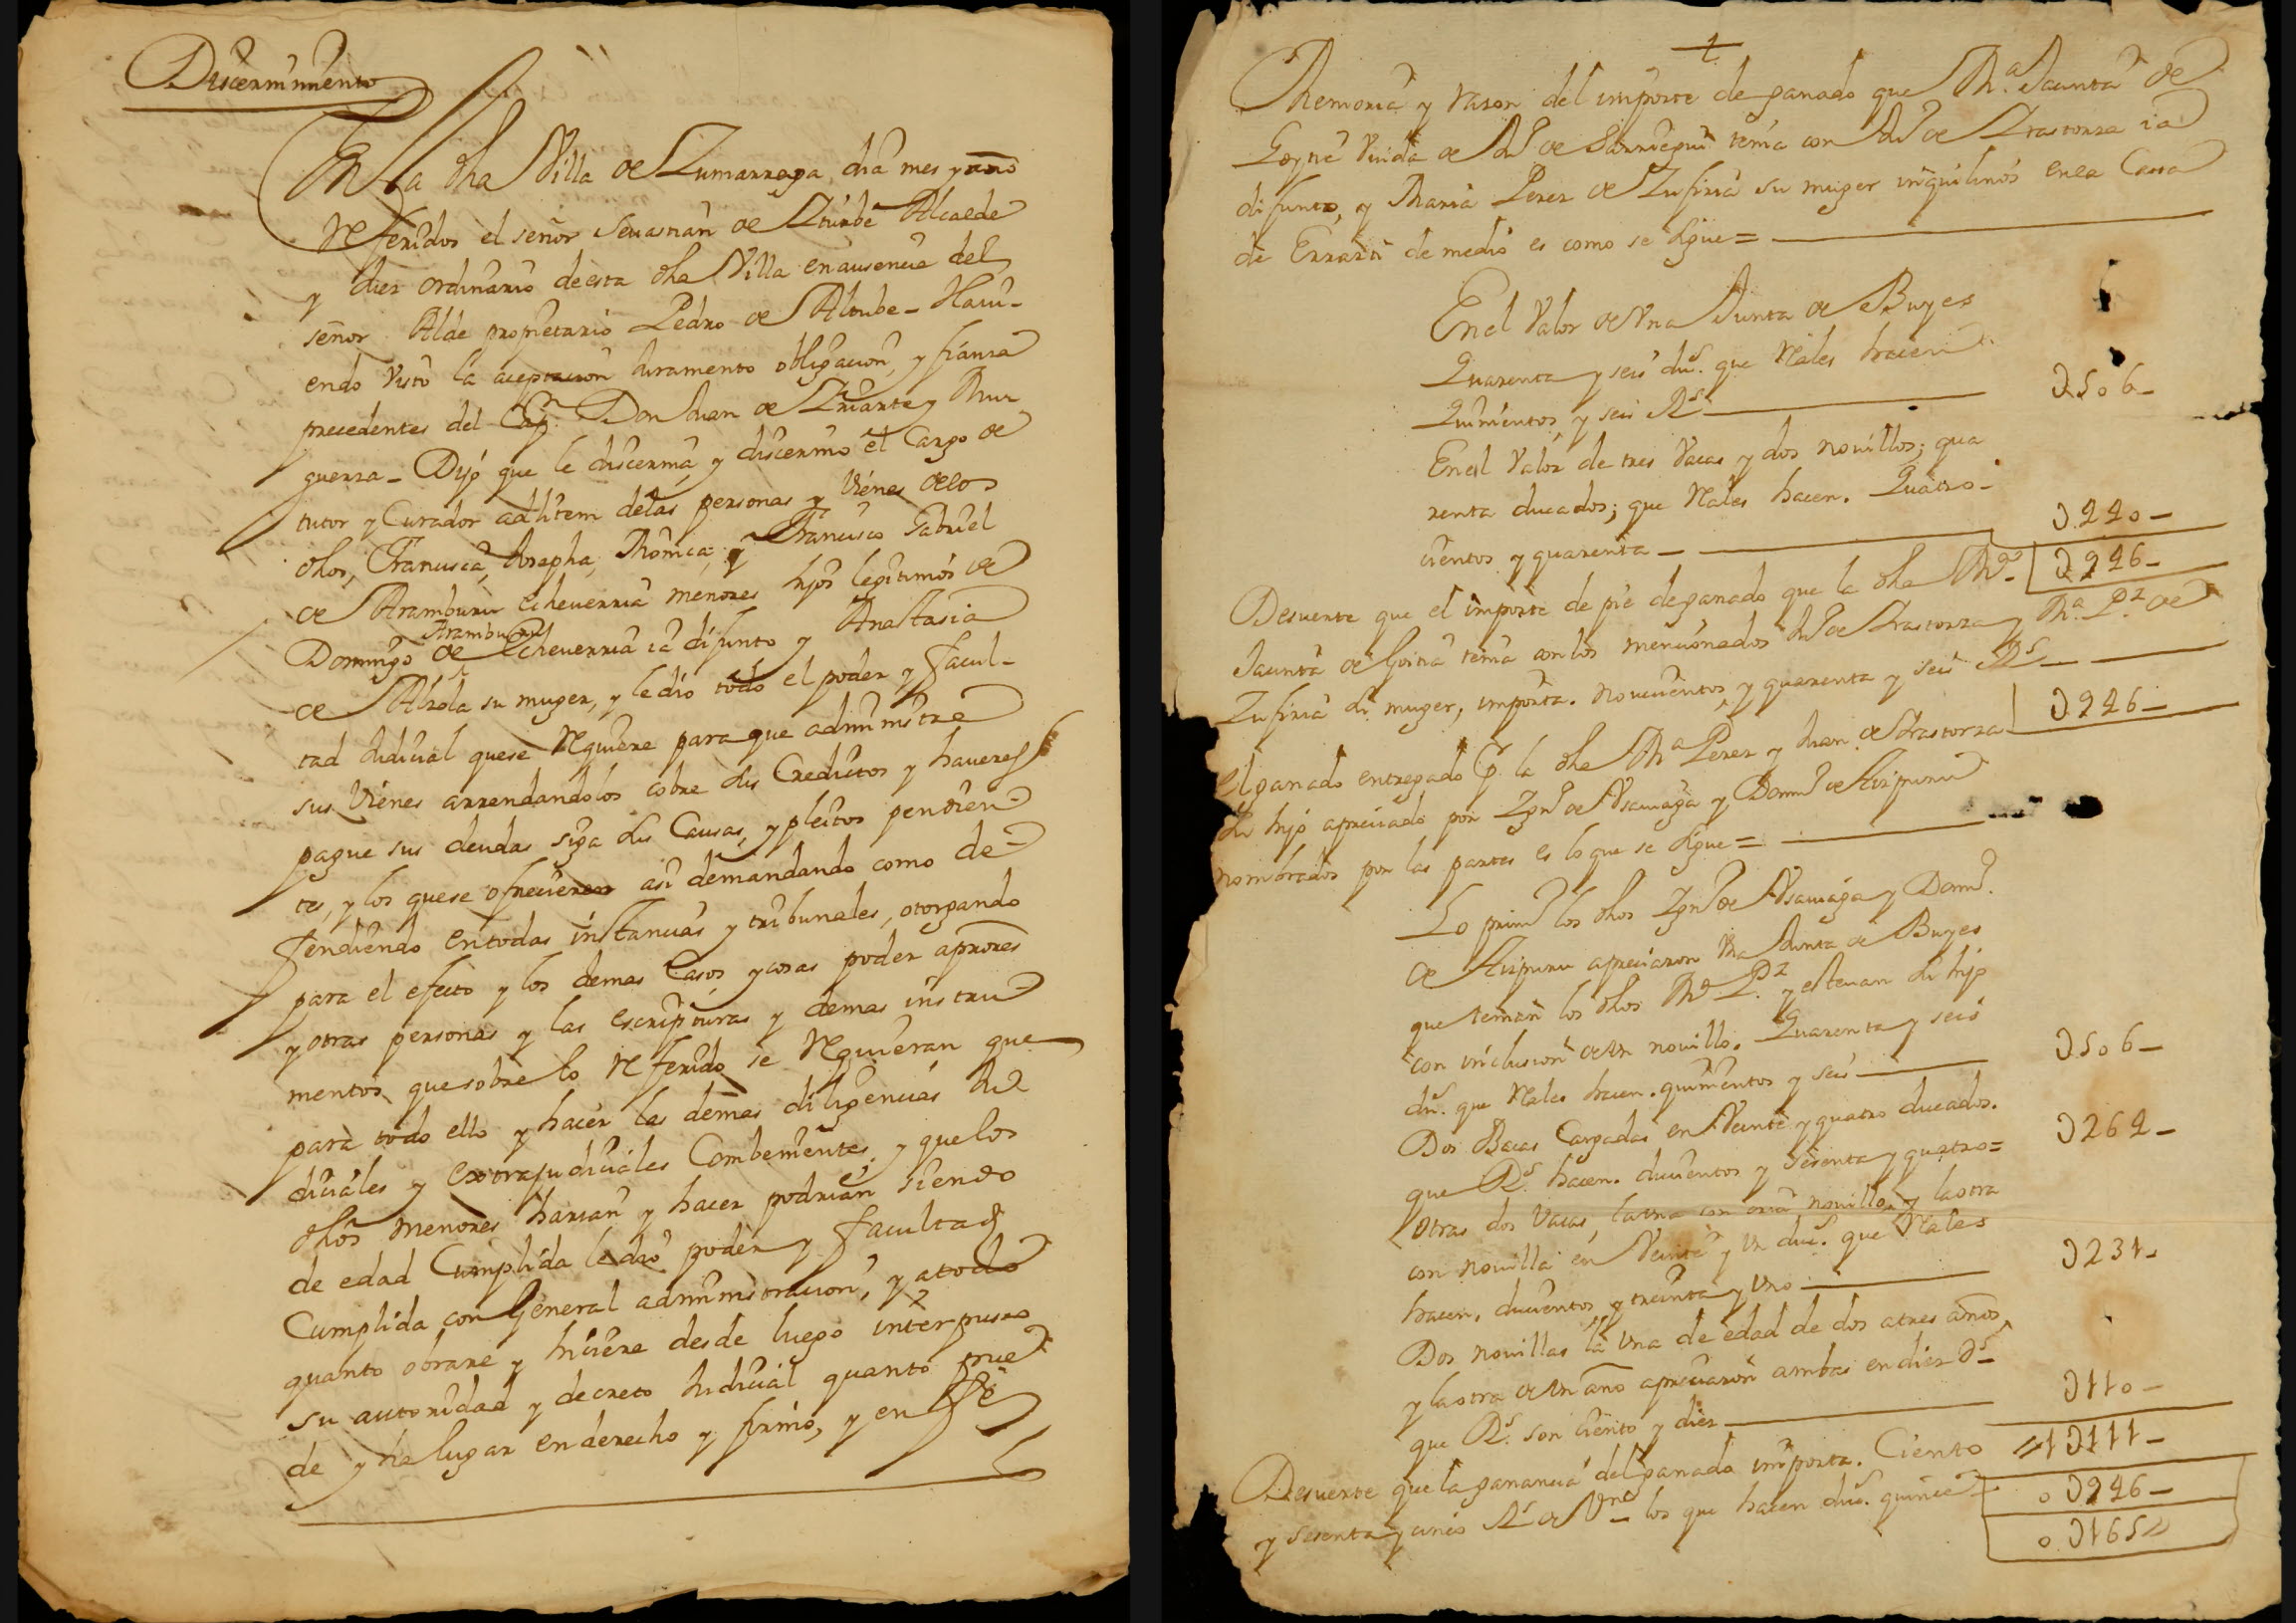 Discernimiento
En la dha Villa de Zumarraga, dia mes y año
referidos el señor Sevastian de Yturbe Alcalde
y Juez ordinario de esta dha Villa en ausencia del
señor Alde propietario Pedro de Altube - Havi-
endo visto la aceptacion Juramento obligacion, y fianza
precedentes del Capn. Don Juan de Yriarte y
guerra - Dijo que le discernia, y discernio el Cargo de
tutor y Curador adlitem delas personas y Vienes delos
dhos, Francisca, Josepha, Monica, y Francisco Gabriel
de Aramburu Echeverria menores hijos legitimos de
Aramburu
Domingo de Echeverria ia difunto y Anastasia
de Alzola su muger, y le dio todo el poder y facul-
tad Judicial quese requiere para que administre
sus Vienes arrendandolos cobre sus Creditos y haveres
pague sus deudas siga sus Causas, y pleitos pendien-
tes, y los quese ofrecieren asi demandando como de-
fendiendo entodas instancias y tribunales, otorgando
para el efecto y los demas Casos, y cosas poder aprores
y otras personas y las escripturas y demas instru
mentos que sobre lo referido se requieran que
para todo ello y hacer las demas diligencias Ju
diciales y extrajudiciales Combenientes, y que los
dhos menores harian y hacer podrian siendo
de edad Cumplida le dio poder y facultad
Cumplida con General administracion, y a todo
quanto obrare y hiciere desde luego interpuso
su autoridad y decreto Judicial quanto pue
de y ha lugar en derecho y firmo, y en fe
Memoria y razon del importe de ganado que Ma. Jacinta de
Goyna Viuda de Jun de Sarriegui tenia con Jun de Yrastorza ia
difunto, y Maria Perez de Zufiria su muger inquilinos enla Cassa
de Errasti de medio es como se sigue =
En el Valor de Vna Junta de Bueyes
Quarenta y seis dus. que reales hacen
Quinientos y seis Rs. 506 -
En el Valor de tres Vacas y dos novillos; qua
renta ducados; que reales hacen. Quatro-
cientos y quarenta - 440 -
946 -
Desuerte que el importe de pie de ganado que la dha Ma.
Jacinta de Goina tenia con los mencionados Jun de Yrastorza y Ma. Pz de
Zufiria su muger, importa. novecientos, y quarenta y seis Rs. -
946 -
El ganado entregado Pr. la dha Ma Perez y Juan de Yrastorza
su hijo apreciado por Ygno de Vsamaga y Domo de Aizpuru
nombrados por las partes es lo que se sigue =
Lo primo los dhos Ygno de Vsamaga y Domo.
de Aizpuru apreciaron vna Junta de Bueyes
que tenian los dhos Ma Pz. y estevan su hijo
con inclusion de vn novillo. Quarenta y seis
dus. que reales hacen. quinientos y seis 506 -
Dos Bacas Cargadas en Veinte y quatro ducados.
que Rs. hacen. ducientos y sesenta y quatro = 264 -
Otras dos Vacas, la vna con cria novillo, y la otra
con novilla en Veinte y vn dus. que reales
hacen, ducientos, y treinta y vno 231 -
Dos novillas la vna de edad de dos a tres años,
y la otra de vn año apreciaron ambas en diez ds -
que Rs. son ciento y diez 110 -
1111 -
Desuerte que la ganancia del ganado importa. Ciento
0 946 -
y sesenta y cinco Rs de Vn - los que hacen dus. quince
0 165